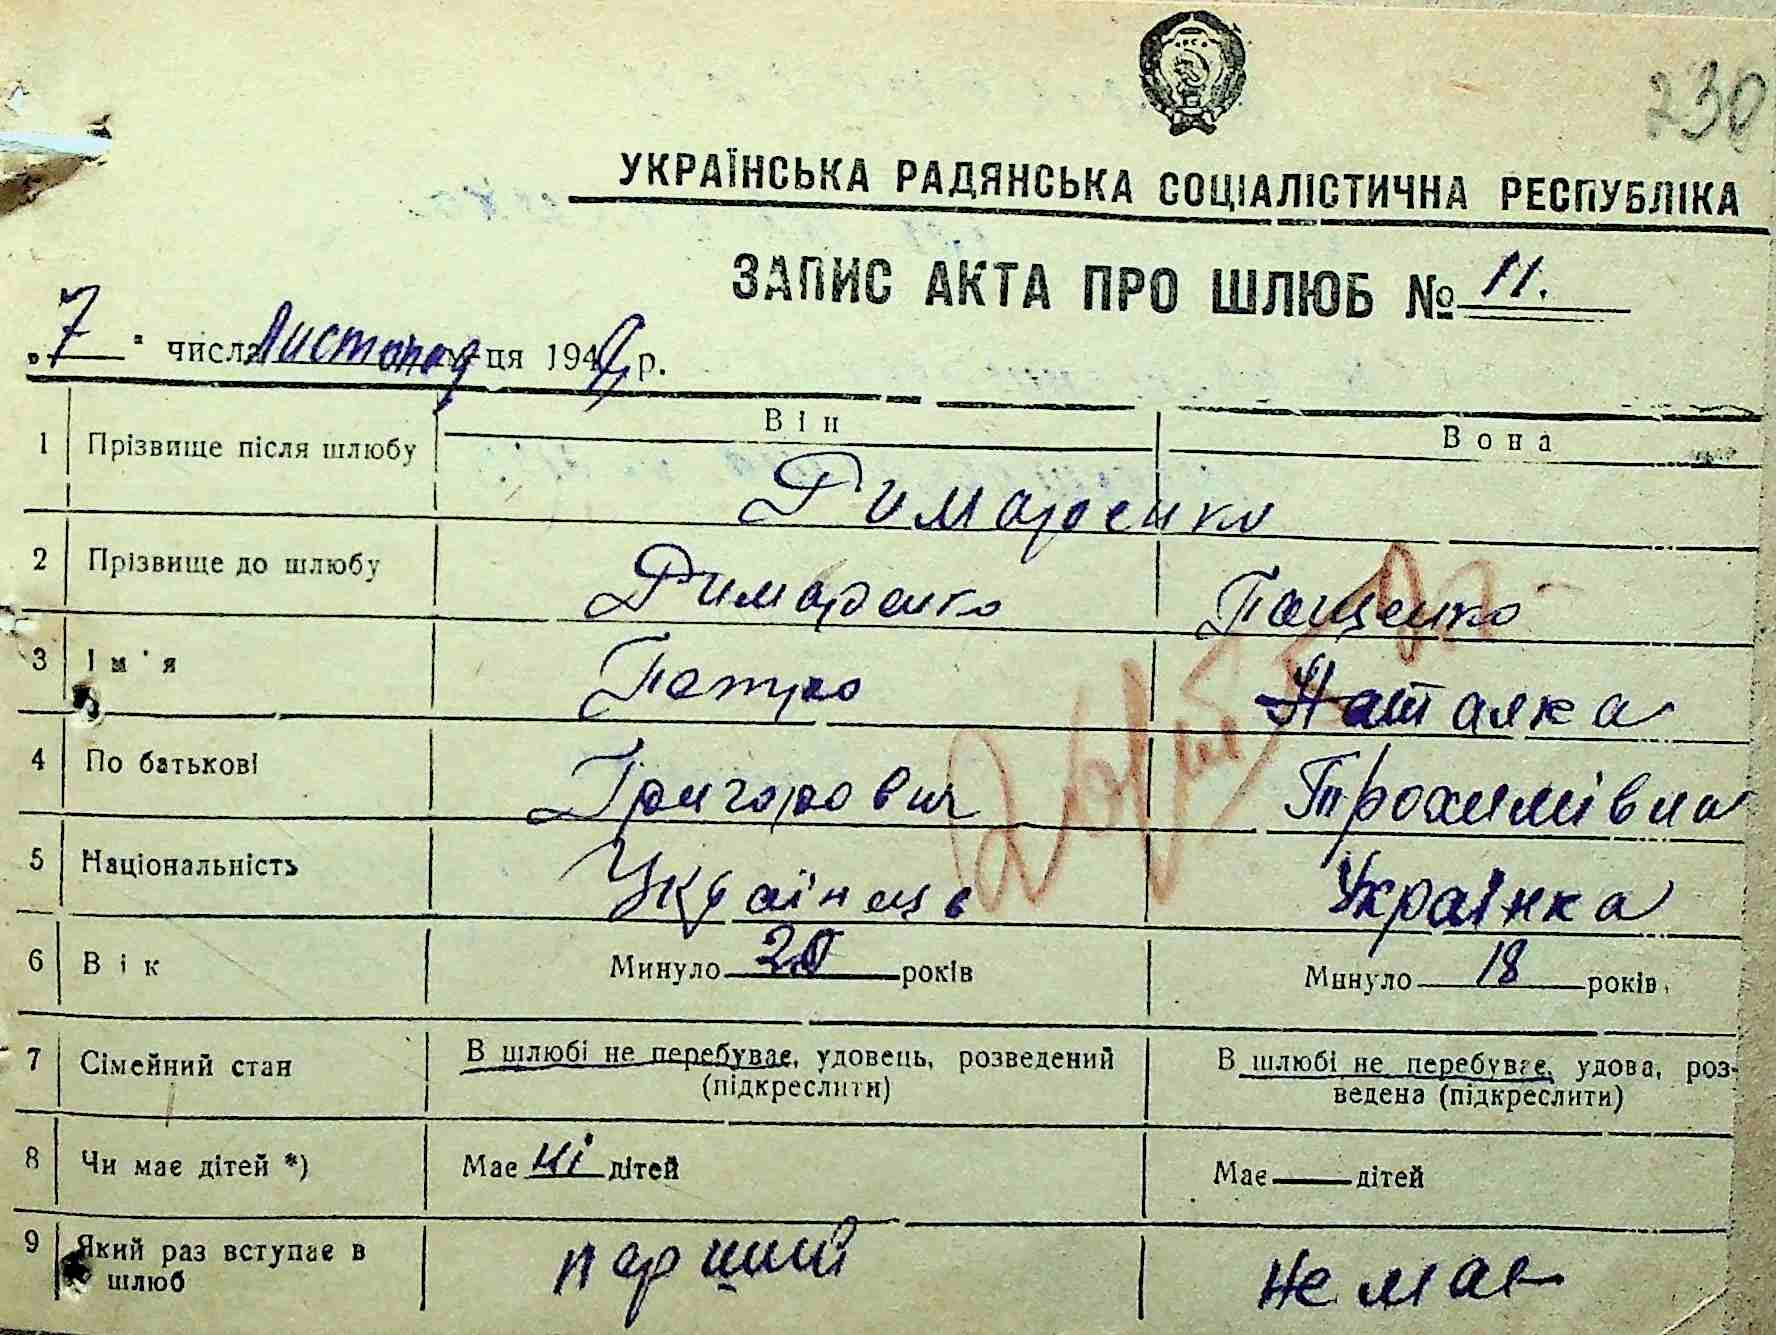 230
УКРАЇНСЬКА РАДЯНСЬКА СОЦІАЛІСТИЧНА РЕСПУБЛІКА
ЗАПИС АКТА ПРО ШЛЮБ № 11.
„7" числа Листопад ця 194 р.
Він Вона
1 Прізвище після шлюбу Римаренко
2 Прізвище до шлюбу Римаренко Пащенко
3 Ім'я Петро Наталка
4 По батькові Григорович Трохимівна
5 Національність Українець Українка
6 Вік Минуло 20 років Минуло 18 років
7 Сімейний стан В шлюбі не перебуває, удовець, розведений (підкреслити) В шлюбі не перебуває, удова, розведена (підкреслити)
8 Чи має дітей *) Має ні дітей Має дітей
9 Який раз вступає в шлюб перший не має